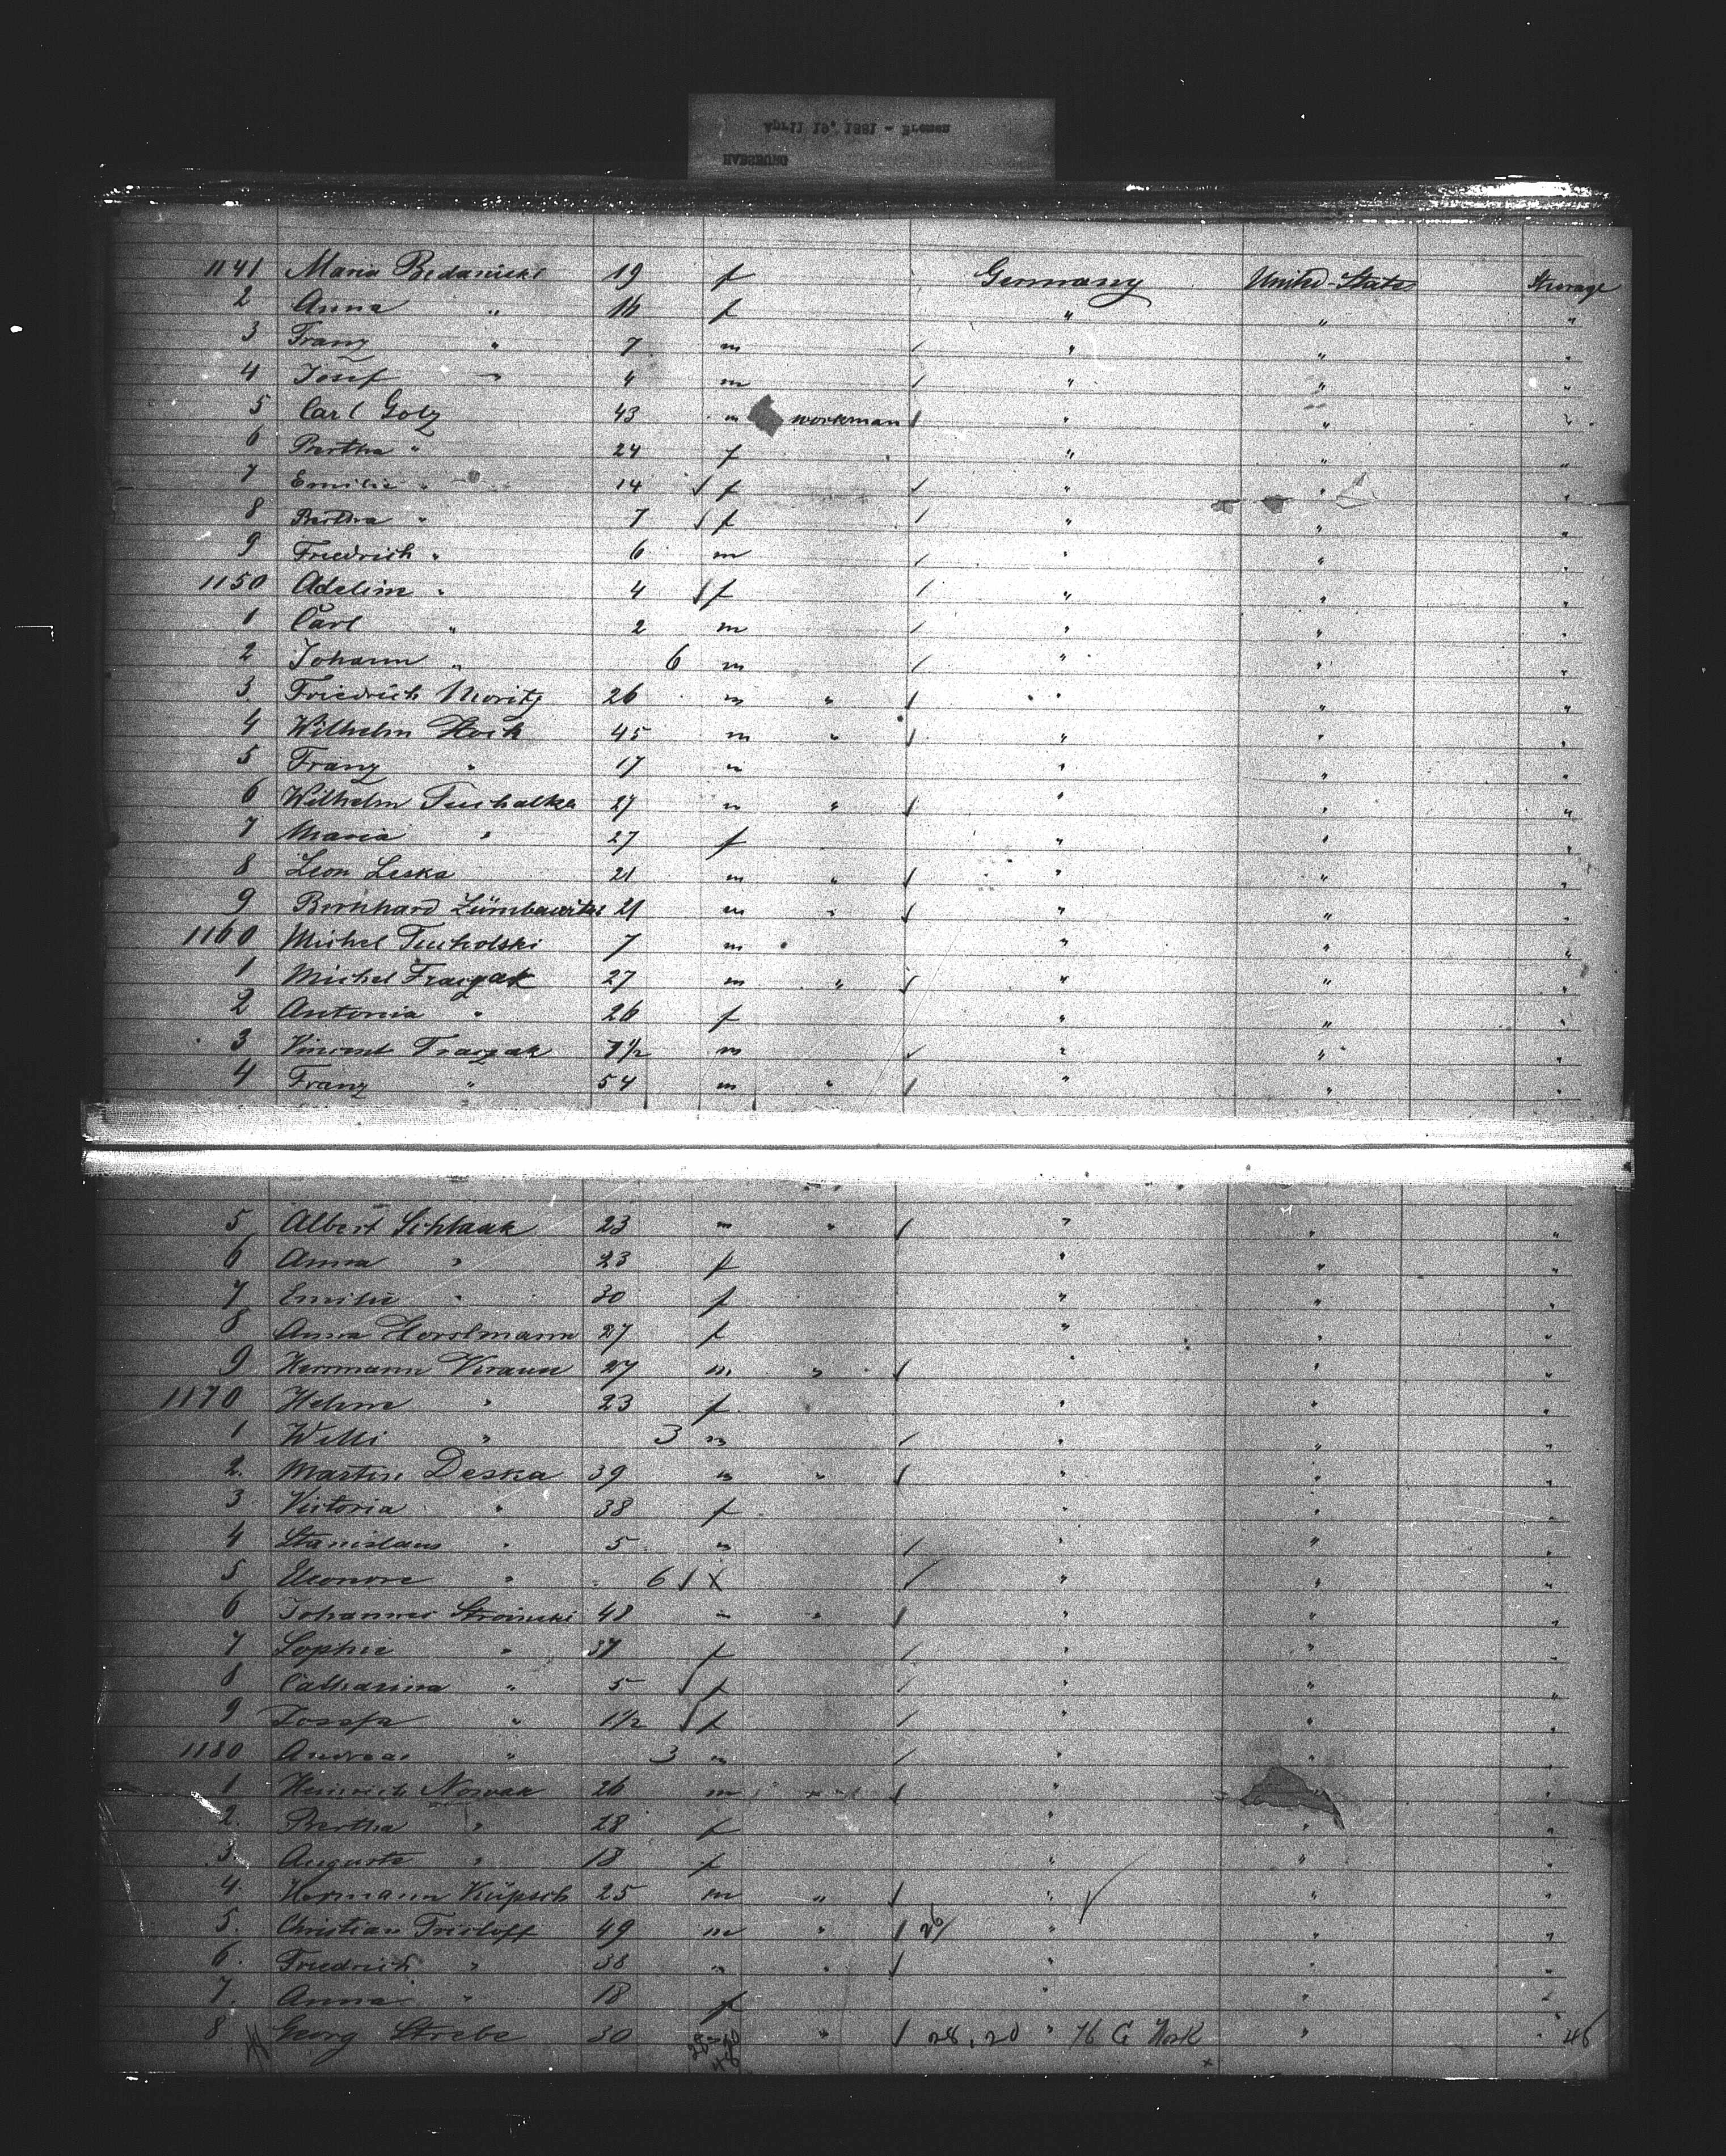 April 18, 1881 - Bremen
1141 Maria 19 f Germany United-States Steerage
2 Anna " 16 f " " "
3 Franz " 7 m " " "
4 Josef " 4 m " " "
5 Carl Golz 43 m workman " " "
6 Bertha " 24 f " " "
7 Emilie " 14 f " " "
8 Bertha " 7 f " " "
9 Friedrich " 6 m " " "
1150 Adeline " 4 f " " "
1 Carl " 2 m " " "
2 Johann " 6 m " " "
3 Friedrich Moritz 26 m " " " "
4 Wilhelm 45 m " " " "
5 Franz " 17 m " " "
6 Wilhelm Tuchalka 27 m " " " "
7 Maria " 27 f " " "
8 Leon Leska 21 m " " " "
9 Bernhard 21 m " " " "
1160 Michel Tucholski 7 m " " "
1 Michel Fraczak 27 m " " " "
2 Antonia " 26 f " " "
3 Vincent Fraczak 1½ m " " "
4 Franz " 54 m " " " "
5 Albert Schlaak 23 m " " " "
6 Anna " 23 f " " "
7 Emilie " 30 f " " "
8 Anna Horstmann 27 f " " "
9 Herrmann Veraun 27 m " " " "
1170 Helene " 23 f " " "
1 Willi " 3 m " " "
2. Martin Deska 39 m " " " "
3 Victoria " 38 f " " "
4 Stanislaus " 5 m " " "
5 Eleonore " 6 " " "
6 Johannes 48 m " " " "
7 Sophie " 37 f " " "
8 Catharina " 5 f " " "
9 Josefa " 1½ f " " "
1180 Andreas " 3 m " " "
1 Heinrich Nowak 26 m " " " "
2. Bertha " 28 f " " "
3. Auguste " 18 f " " "
4. Hermann Küpsch 25 m " " " "
5. Christian Frisloff 49 m " 26 " " "
6. Friedrich " 38 m " " " "
7. Anna " 18 f " " "
8 Georg Strebe 30 " 28, 20 " 76 G Work " " 46